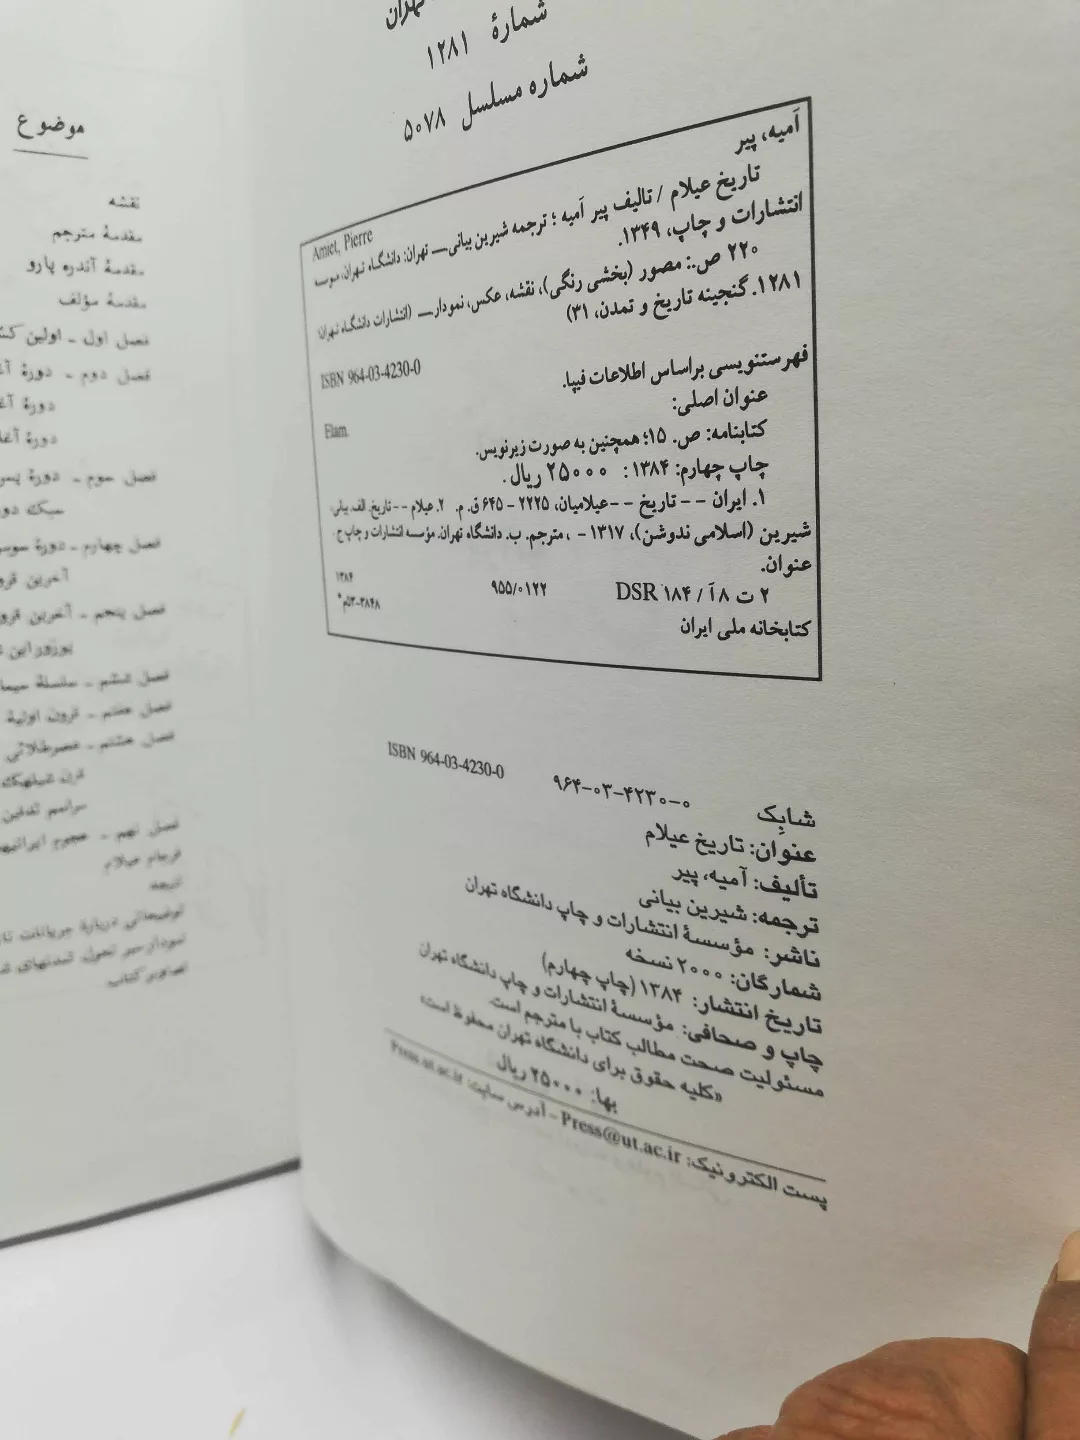 تهران
شمارهٔ ۱۲۸۱
شماره مسلسل ۵۰۷۸
آمیه، پیر
Amiet, Pierre
تاریخ عیلام / تالیف پیر آمیه ؛ ترجمه شیرین بیانی__ تهران: دانشگاه تهران، موسسه
انتشارات و چاپ، ۱۳۴۹.
۲۲۰ ص.: مصور (بخشی رنگی)، نقشه، عکس، نمودار__ (انتشارات دانشگاه تهران؛
۱۲۸۱. گنجینه تاریخ و تمدن، ۳۱)
ISBN 964-03-4230-0
فهرستنویسی براساس اطلاعات فیپا.
عنوان اصلی: Elam.
کتابنامه: ص. ۱۵؛ همچنین به صورت زیرنویس.
چاپ چهارم: ۱۳۸۴ : ۲۵۰۰۰ ریال.
۱. ایران -- تاریخ -- عیلامیان، ۲۲۲۵ - ۶۴۵ ق. م. ۲. عیلام -- تاریخ. الف. بیانی،
شیرین (اسلامی ندوشن)، ۱۳۱۷ - ، مترجم. ب. دانشگاه تهران. مؤسسه انتشارات و چاپ ج.
عنوان.
۲ ت ۸ آ / ۱۸۴ DSR ۹۵۵/۰۱۲۲ ۱۳۸۴
کتابخانه ملی ایران *م۸۴-۳۸۴۸
شابِک ۹۶۴-۰۳-۴۲۳۰-۰ ISBN 964-03-4230-0
عنوان: تاریخ عیلام
تألیف: آمیه، پیر
ترجمه: شیرین بیانی
ناشر: مؤسسهٔ انتشارات و چاپ دانشگاه تهران
شمارگان: ۲۰۰۰ نسخه
تاریخ انتشار: ۱۳۸۴ (چاپ چهارم)
چاپ و صحافی: مؤسسهٔ انتشارات و چاپ دانشگاه تهران
مسئولیت صحت مطالب کتاب با مترجم است.
«کلیه حقوق برای دانشگاه تهران محفوظ است»
بها: ۲۵۰۰۰ ریال
پست الکترونیک: Press@ut.ac.ir - آدرس سایت: Press.ut.ac.ir
موضوع
نقشه
مقدمهٔ مترجم
مقدمهٔ آندره پارو
مقدمهٔ مؤلف
فصل اول - اولین
فصل دوم - دورهٔ
دورهٔ
دورهٔ
فصل سوم - دورهٔ
سبک
فصل چهارم - دورهٔ
آخرین
فصل پنجم - آخرین
پوزور این
فصل ششم - سلسلهٔ
فصل هفتم - قرون اولیهٔ
فصل هشتم - عصر طلائی
قرن
مراسم تدفین
فصل نهم - هجوم
فرجام عیلام
نتیجه
توضیحاتی دربارهٔ جریانات
نمودار سیر تحول تمدنهای
تصاویر کتاب